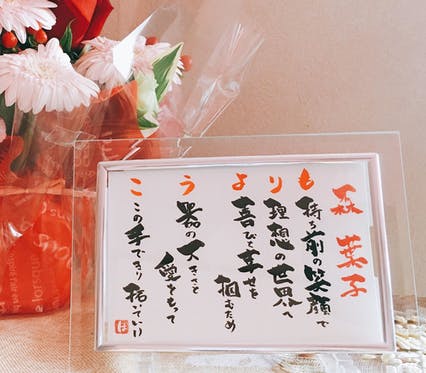 森 葉子
も
持ち前の笑顔で
り
理想の世界へ
よ
喜びと幸せを
掴むため
う
器の大きさと
愛をもって
こ
この手できり拓いていけ